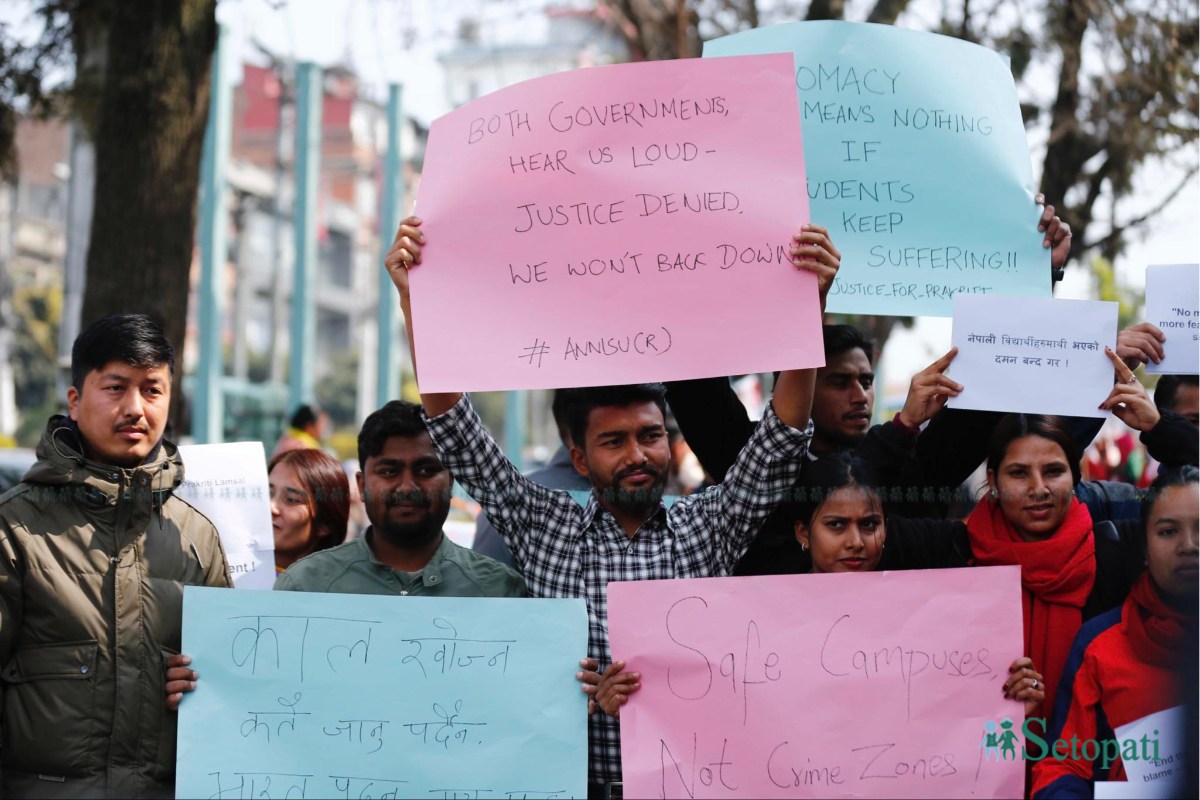 BOTH GOVERNMENTS,
HEAR US LOUD-
JUSTICE DENIED.
WE WON'T BACK DOWN
# ANNISU(R)
OMACY
MEANS NOTHING
IF
UDENTS
KEEP
SUFFERING!!
JUSTICE_FOR_PRAKRITI
नेपाली विद्यार्थीहरुमाथी भएको
दमन बन्द गर !
"No m
more fea
Prakriti Lamsal
ent !
काल खोज्न
कतै जानु पर्दैन.
भारत पढ्न
Safe Campuses,
Not Crime Zones !
"End
blame
Setopati